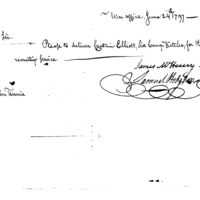 War office, June 24th 1797 —
Sir
Please to deliver Captain Elliott, Six Camp Kettles, for the
recruiting Service.
James McHenry
Samuel Hodgdon
John Harris